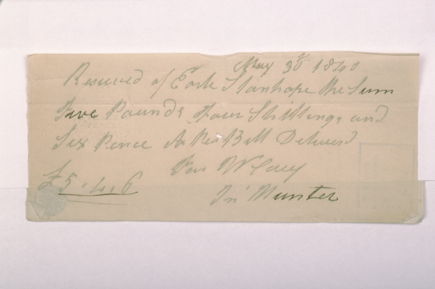 May 30th 1840
Received of Earl Stanhope the Sum
Five Pounds Four Shillings and
Six Pence As Per Bill Delivered
For W
£5 - 4 - 6
Munster